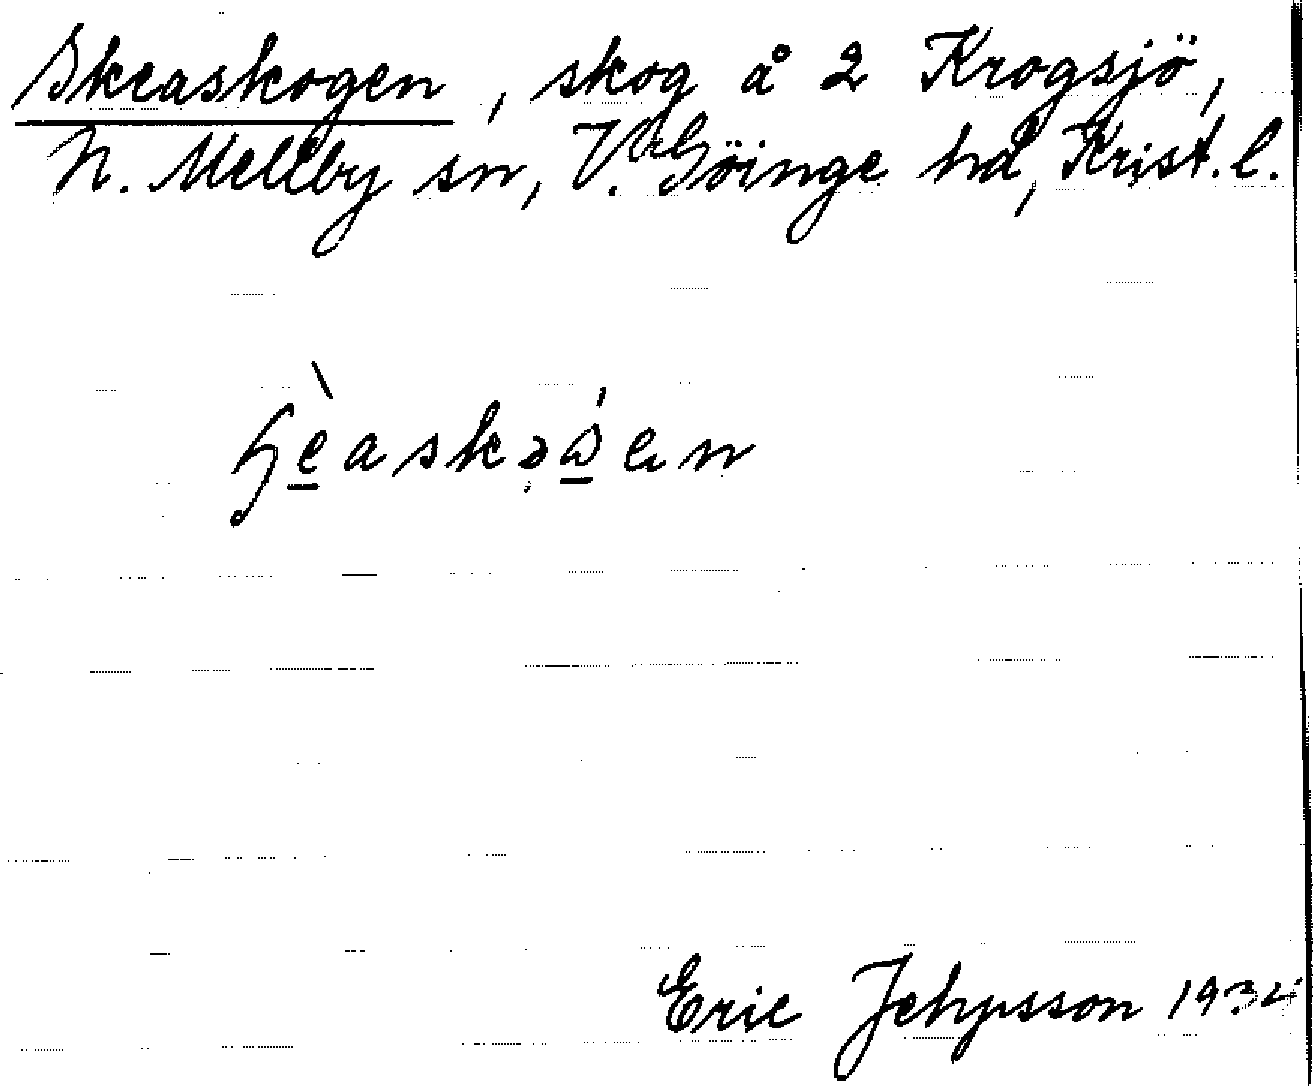 Skeaskogen, skog å 2 Krogsjö,
N. Mellby sn, V. Göinge hd, Krist. l.
Eric Jehpsson 1934